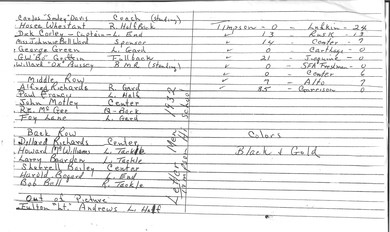 Carlos "Smley" Davis Coach (Standing)
Hosea Wheistant R. Halfback
Dick Corley - Captain - L. End
Mrs Johnny Bell Ward Sponsor
George Green L. Gard
G.W. Bo Griffin Fullback
Willard "OK" Bussey B.M.R. (Standing)
Middle Row
Alfred Richards R. Gard
Paul Crancy L. Half
John Motley Center
R.E. McGee Q-Back
Foy Lane L. Gard
Back Row
Dillard Richards Center
Howard McWilliams L. Tackle
Larry Bearden L. Tackle
Shetrell Bailey Center
Harold Bogard L. End
Bob Bell R. Tackle
Out of Picture
Fulton "Lt." Andrews L. Half
Letter Men 1932
Timpson Hi School
Timpson - 0 - Lufkin - 24
✓ 13 Rusk - 13
✓ 14 - Center - 7
✓ 0 - Carthage - 0
✓ 21 - 0
✓ 0 - SFA Freshmen - 0
✓ 0 - Center 6
✓ 9 - Alto 7
✓ 85 - Garrison 0
Colors
Black & Gold